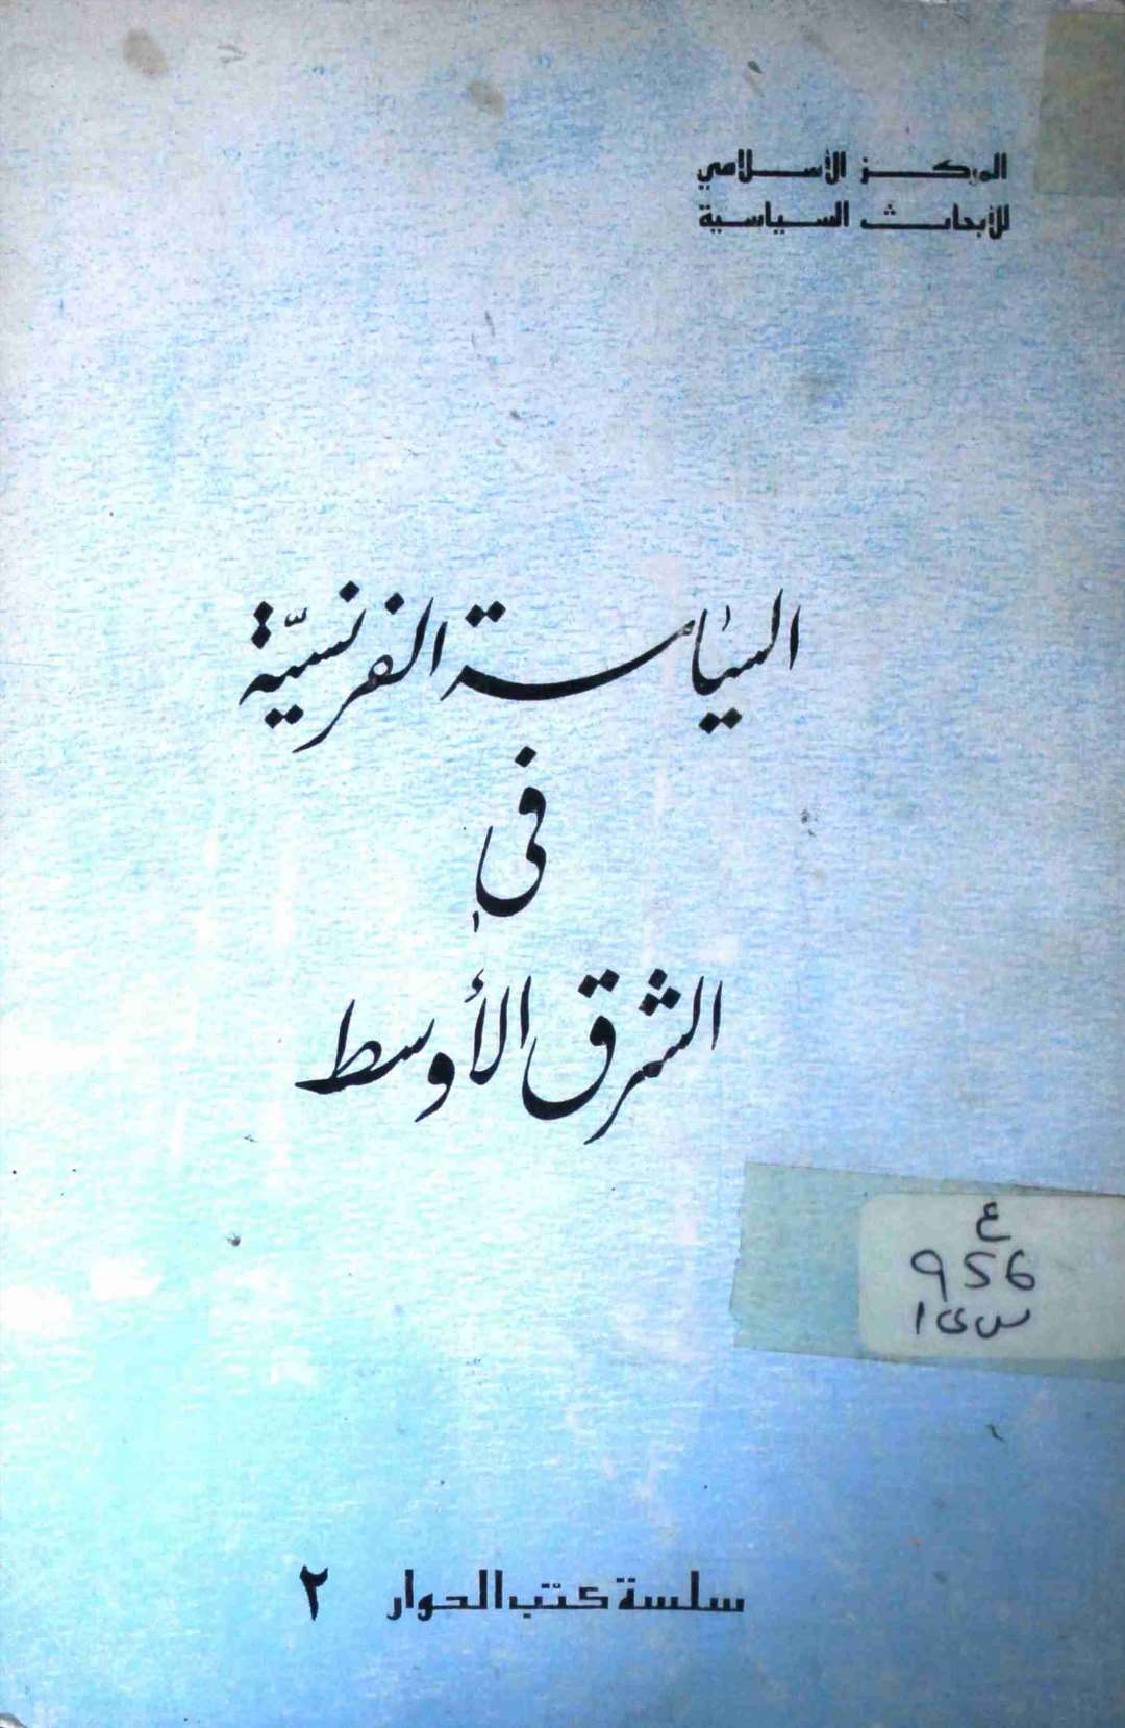 المركز الأسلامي
للأبحاث السياسية
السياسة الفرنسيّة
في
الشرق الأوسط
ع
956
س ى ا
سلسة كتب الحوار ٢